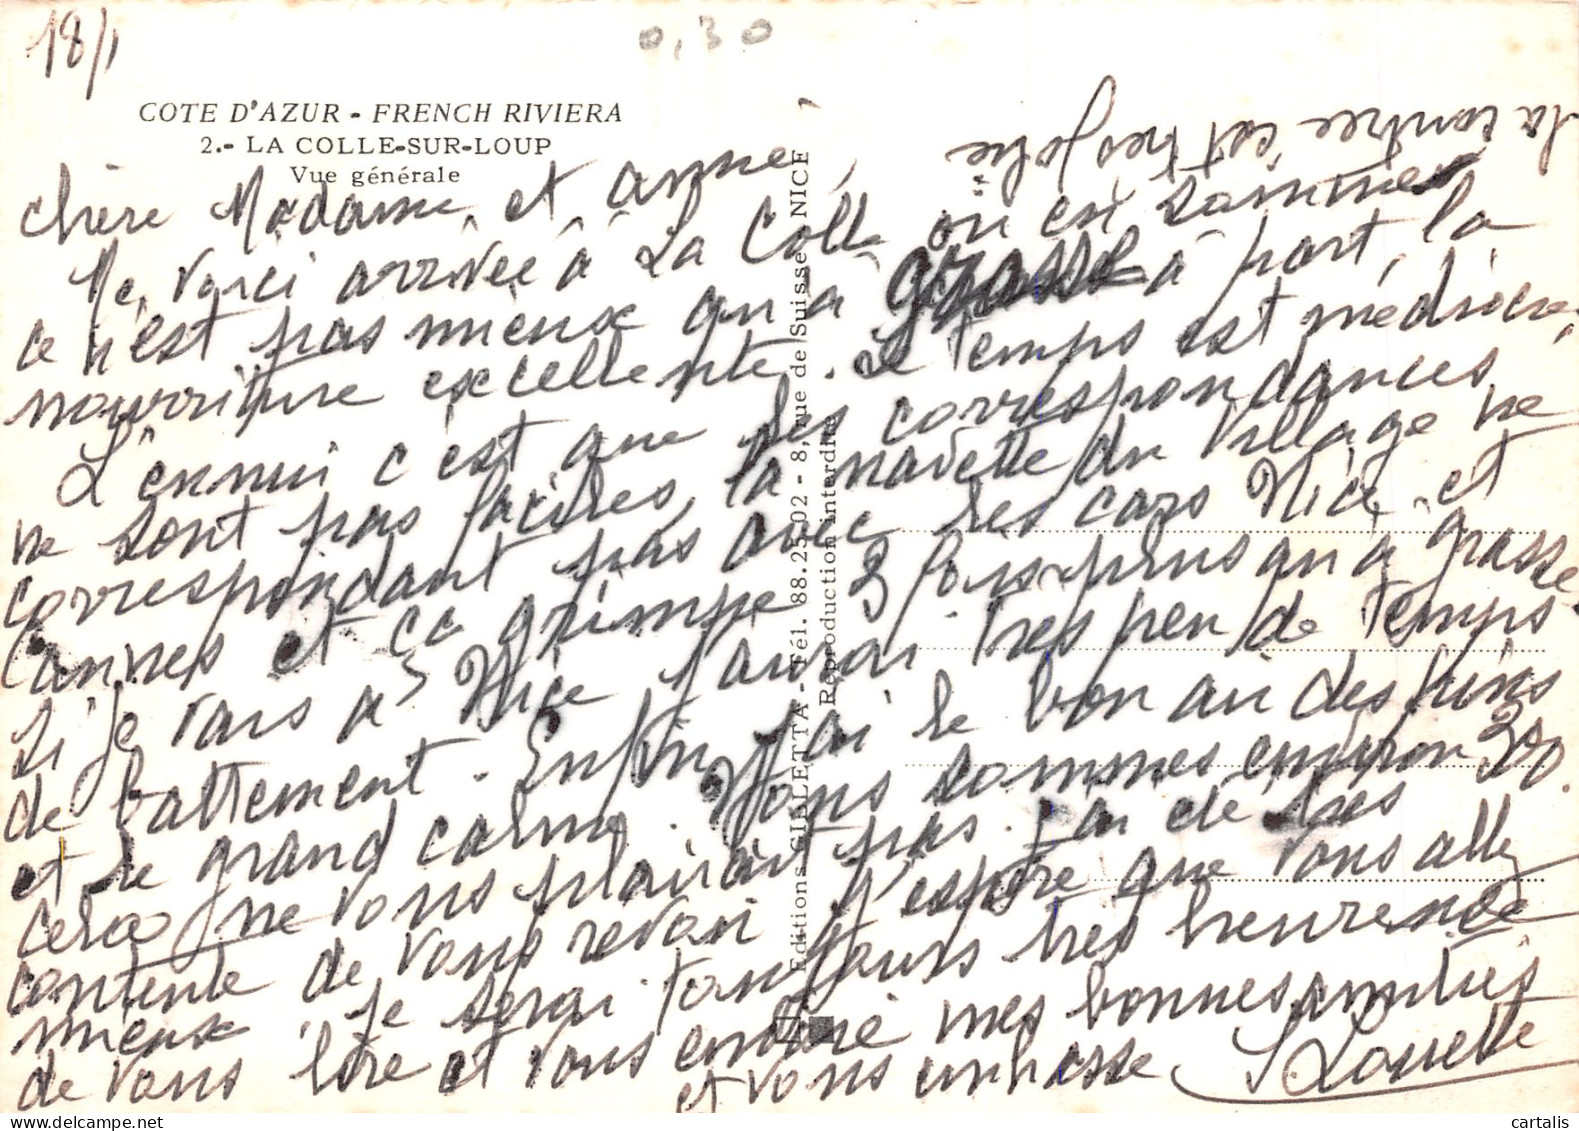 18/1
0,30
COTE D'AZUR - FRENCH RIVIERA
2.- LA COLLE-SUR-LOUP
Vue générale
la contrée est très jolie
chère Madame et anne,
Me voici arrivée à La Colle où en sommes
ce n'est pas mieux qu'à grasse à part, la
nourriture excellente. Le temps est médiocre,
L'ennui c'est que les correspondances
ne sont pas faciles, la navette du village ne
correspondant pas avec les cars Nice et
Cannes et ça grimpe 3 fois plus qu'à grasse.
Si je vais à Nice j'aurai très peu de temps
de battement. Enfin j'ai le bon air des pins
et le grand calme. Nous sommes environ 300.
cela ne vous plairait pas. j'ai été très
contente de vous revoir j'espère que vous allez
mieux. je serai toujours très heureuse
de vous lire et vous envoie mes bonnes amitiés
et vous embrasse
Editions GILETTA - Tél. 88.25.02 - 8, rue de Suisse - NICE
Reproduction interdite